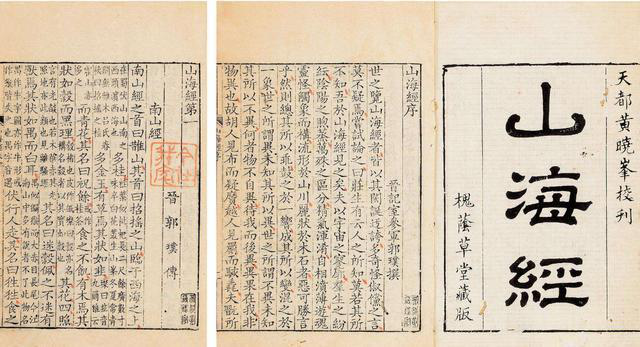 天都黃曉峯校刊
山海經
槐蔭草堂藏版
山海經序
晉記室參軍郭璞撰
世之覽山海經者皆以其閎誕迂誇多奇怪俶儻之言
莫不疑焉嘗試論之曰莊生有云人之所知莫若其所
不知吾於山海經見之矣夫以宇宙之寥廓羣生之紛
紜陰陽之煦蒸萬殊之區分精氣渾淆自相濆薄遊魂
靈怪觸象而構流形於山川麗狀於木石者惡可勝言
乎然則總其所以乖鼓之於一響成其所以變混之於
一象世之所謂異未知其所以異世之所謂不異未知
其所以不異何者物不自異待我而後異異果在我非
物異也故胡人見布而疑黂越人見罽而駭毳夫翫所
山海經第一
南山經
晉 郭璞傳
南山經之首曰䧿山其首曰招搖之山臨于西海之上
多桂 多金玉有草焉其狀如韭
而青花其名曰祝餘 食之不飢有木焉其
狀如穀而黑理 其花四照
其名曰迷穀佩之不迷有
獸焉其狀如禺而白耳
伏行人走其名曰狌狌食之